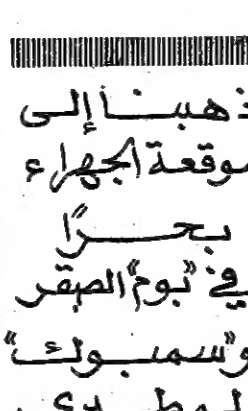 ذهبنا إلى
موقعة الجهراء
بحرًا
في "بوم" الصقر
و"سمبوك"